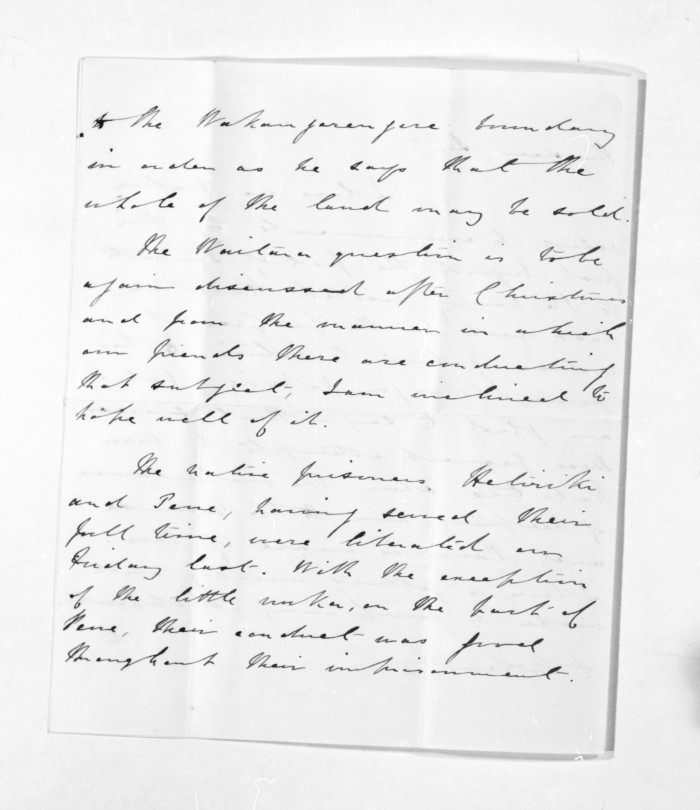 to the Wakangerengere boundary
in order as he says that the
whole of the land may be sold.
The Waitara question is to be
again discussed after Christmas
and from the manner in which
our friends there are conducting
that subject, I am inclined to
hope well of it.
The native prisoners Hebiriki
and Pene, having served their
full time, were liberated on
Friday last. With the exception
of the little on the part of
Pene, their conduct was good
throughout their imprisonment.